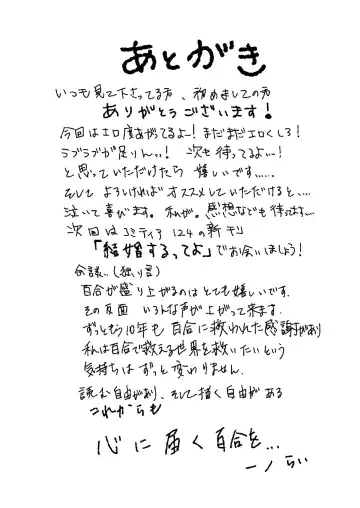 あとがき
いつも見て下さってる方、初めましての方
ありがとうございます!
今回はエロ度あがってるよー!まだまだエロくしろ!
ラブラブが足りん、、!次も待ってるよ…!
と思っていただけたら嬉しいです……
そして よろしければオススメしていただけると、…
泣いて喜びます。私が。感想なども待ってます…
次回はコミティア124の新刊
「結婚するってよ」でお会いしましょう!
余談、、(独り言)
百合が盛り上がるのはとても嬉しいです。
その反面 いろんな声が上がって来ます。
ずっともう10年も百合に救われた感謝があり
私は百合で救える世界を救いたいという
気持ちは ずっと変わりません。
読む自由があり、そして描く自由がある
これからも
心に届く百合を…
一ノ らい